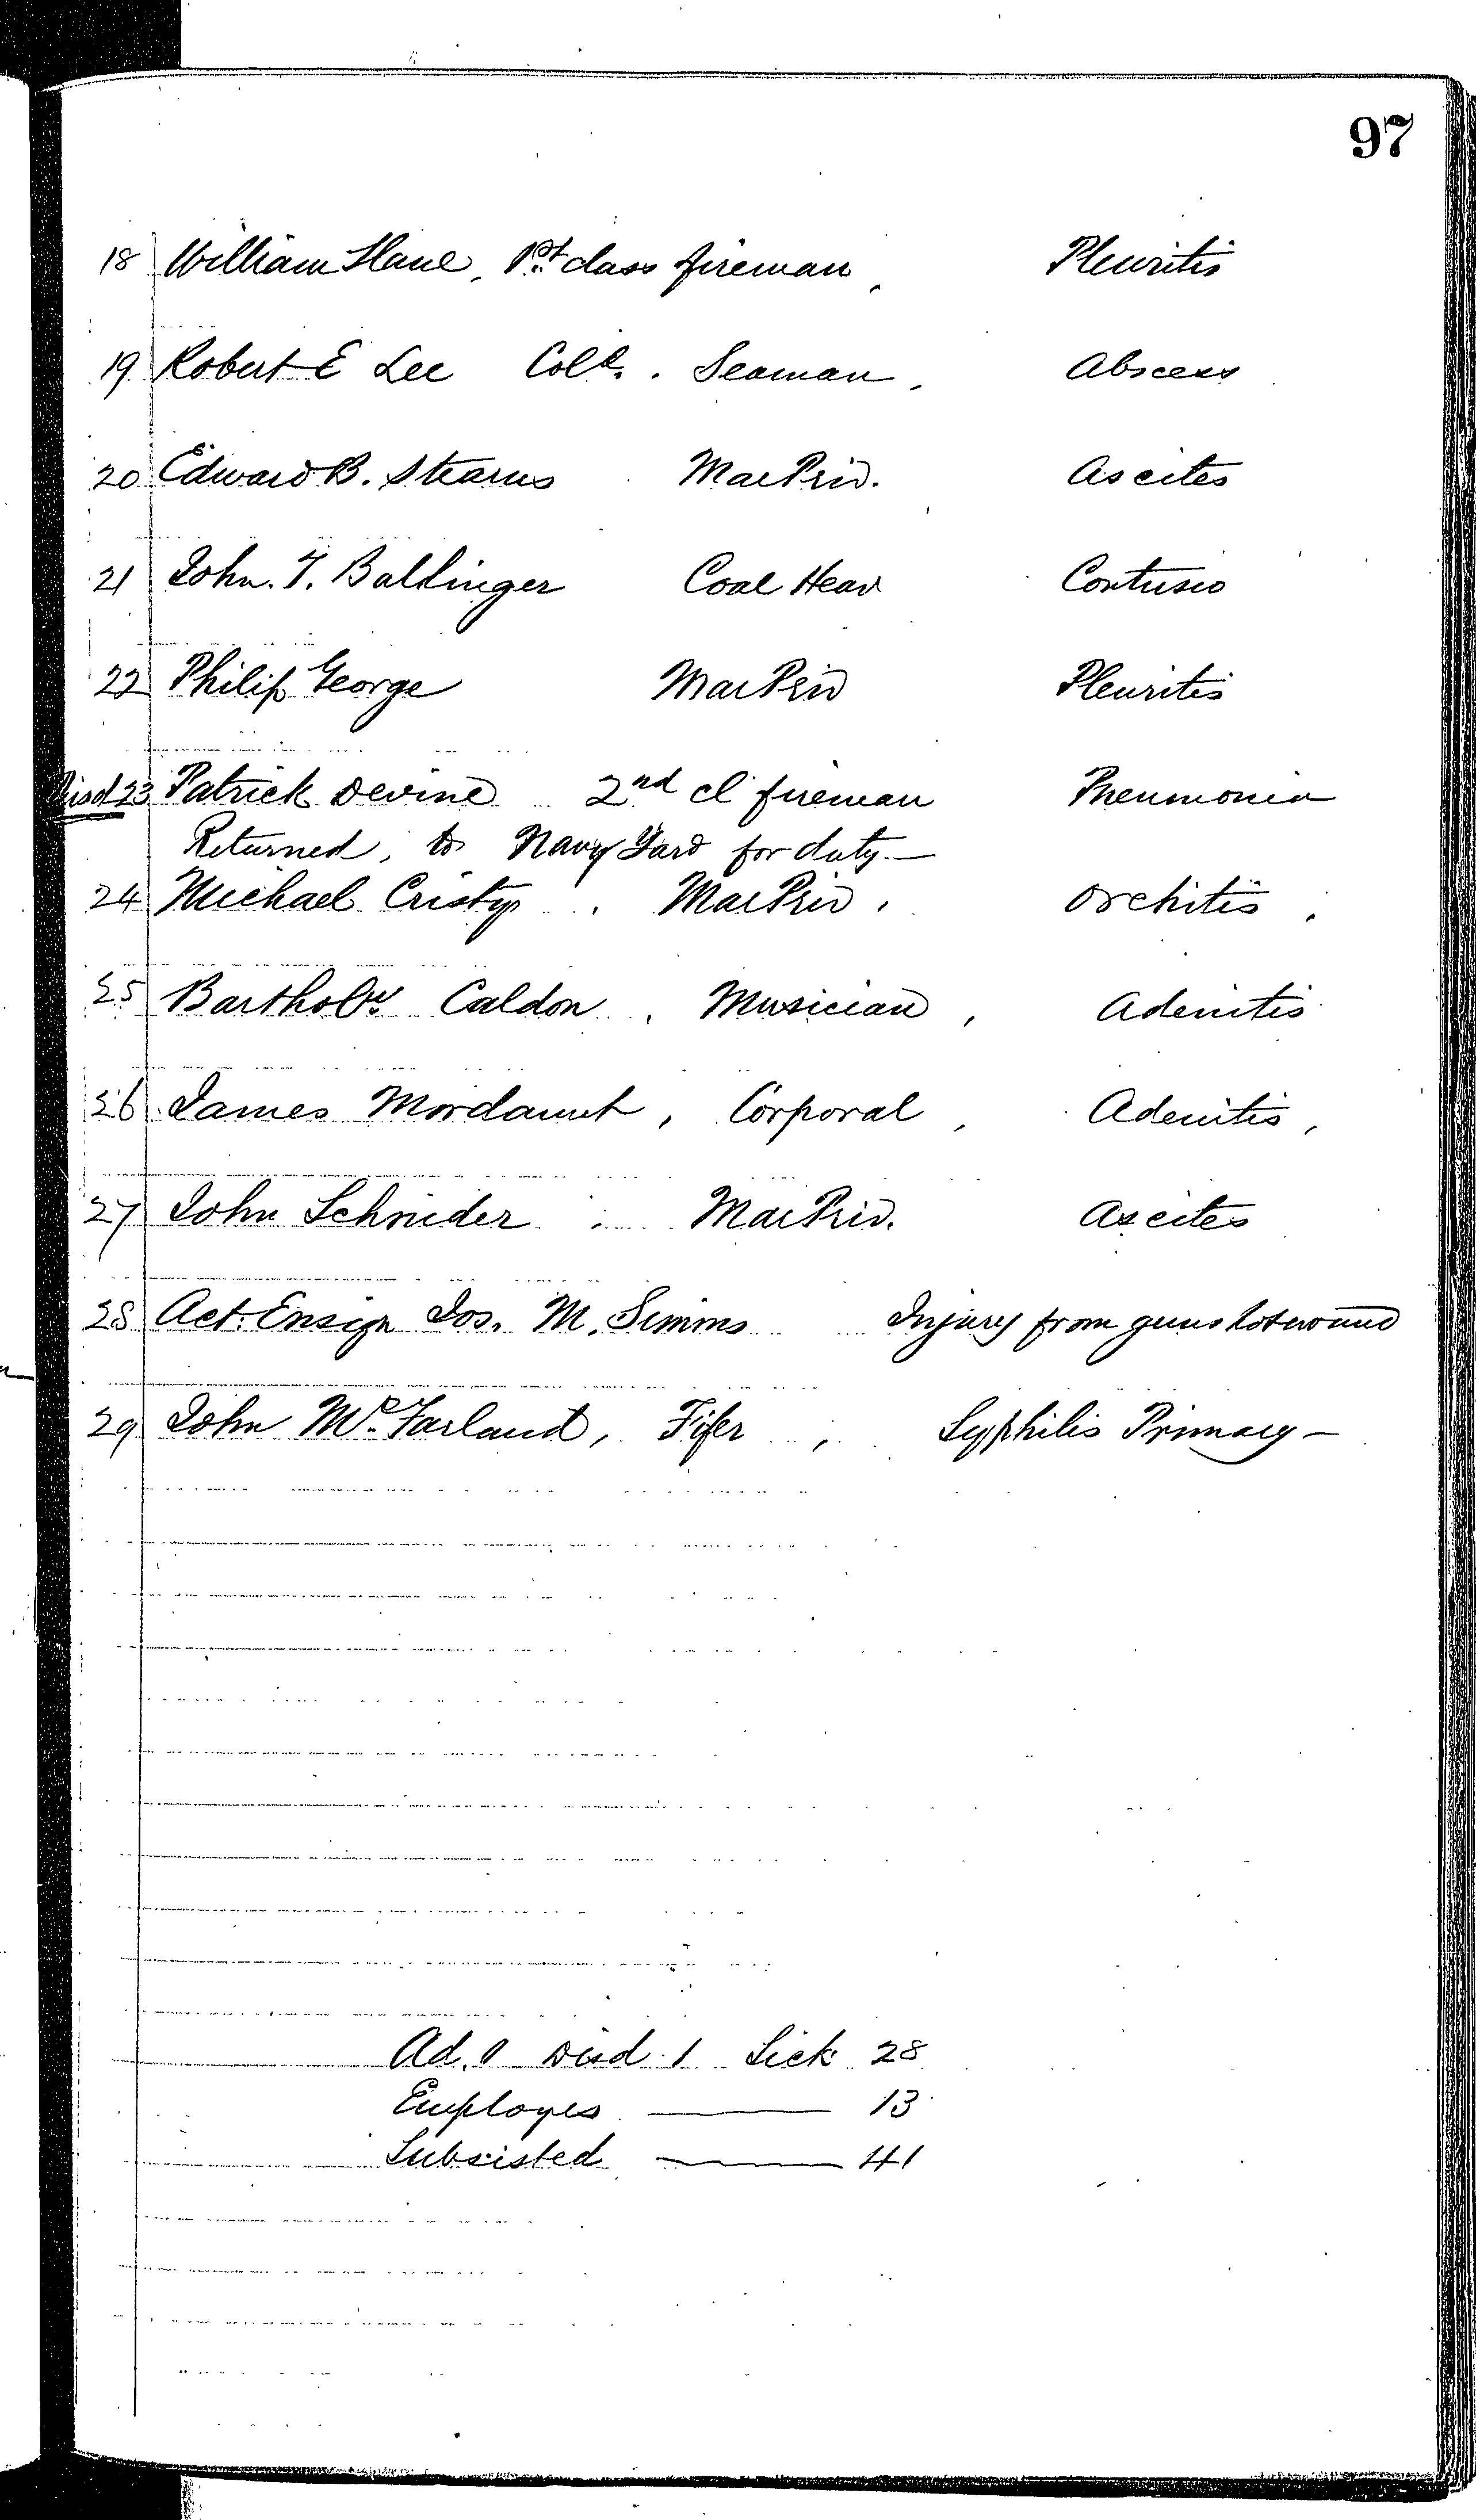 97
18 William Hane, 1st class fireman, Pleuritis
19 Robert E Lee Cold. Seaman, Abscess
20 Edward B. Stearns Mar Priv. Ascites
21 John. T. Ballinger Coal Heav Contusio
22 Philip George Mar Priv Pleuritis
Disd 23 Patrick Devine 2nd cl fireman Pneumonia
Returned, to Navy Yard for duty.—
24 Michael Cristy, Mar Priv, Orchitis,
25 Bartholw Caldon, Musician, Adenitis
26 James Mordaunt, Corporal, Adenitis,
27 John Schnider Mar Priv. Ascites
28 Act. Ensign Jos. M. Simms Injury from gunshot wound
29 John McFarland, Fifer, Syphilis Primary—
Ad. 0 Disd. 1 Sick 28
Employes — 13
Subsisted — 41